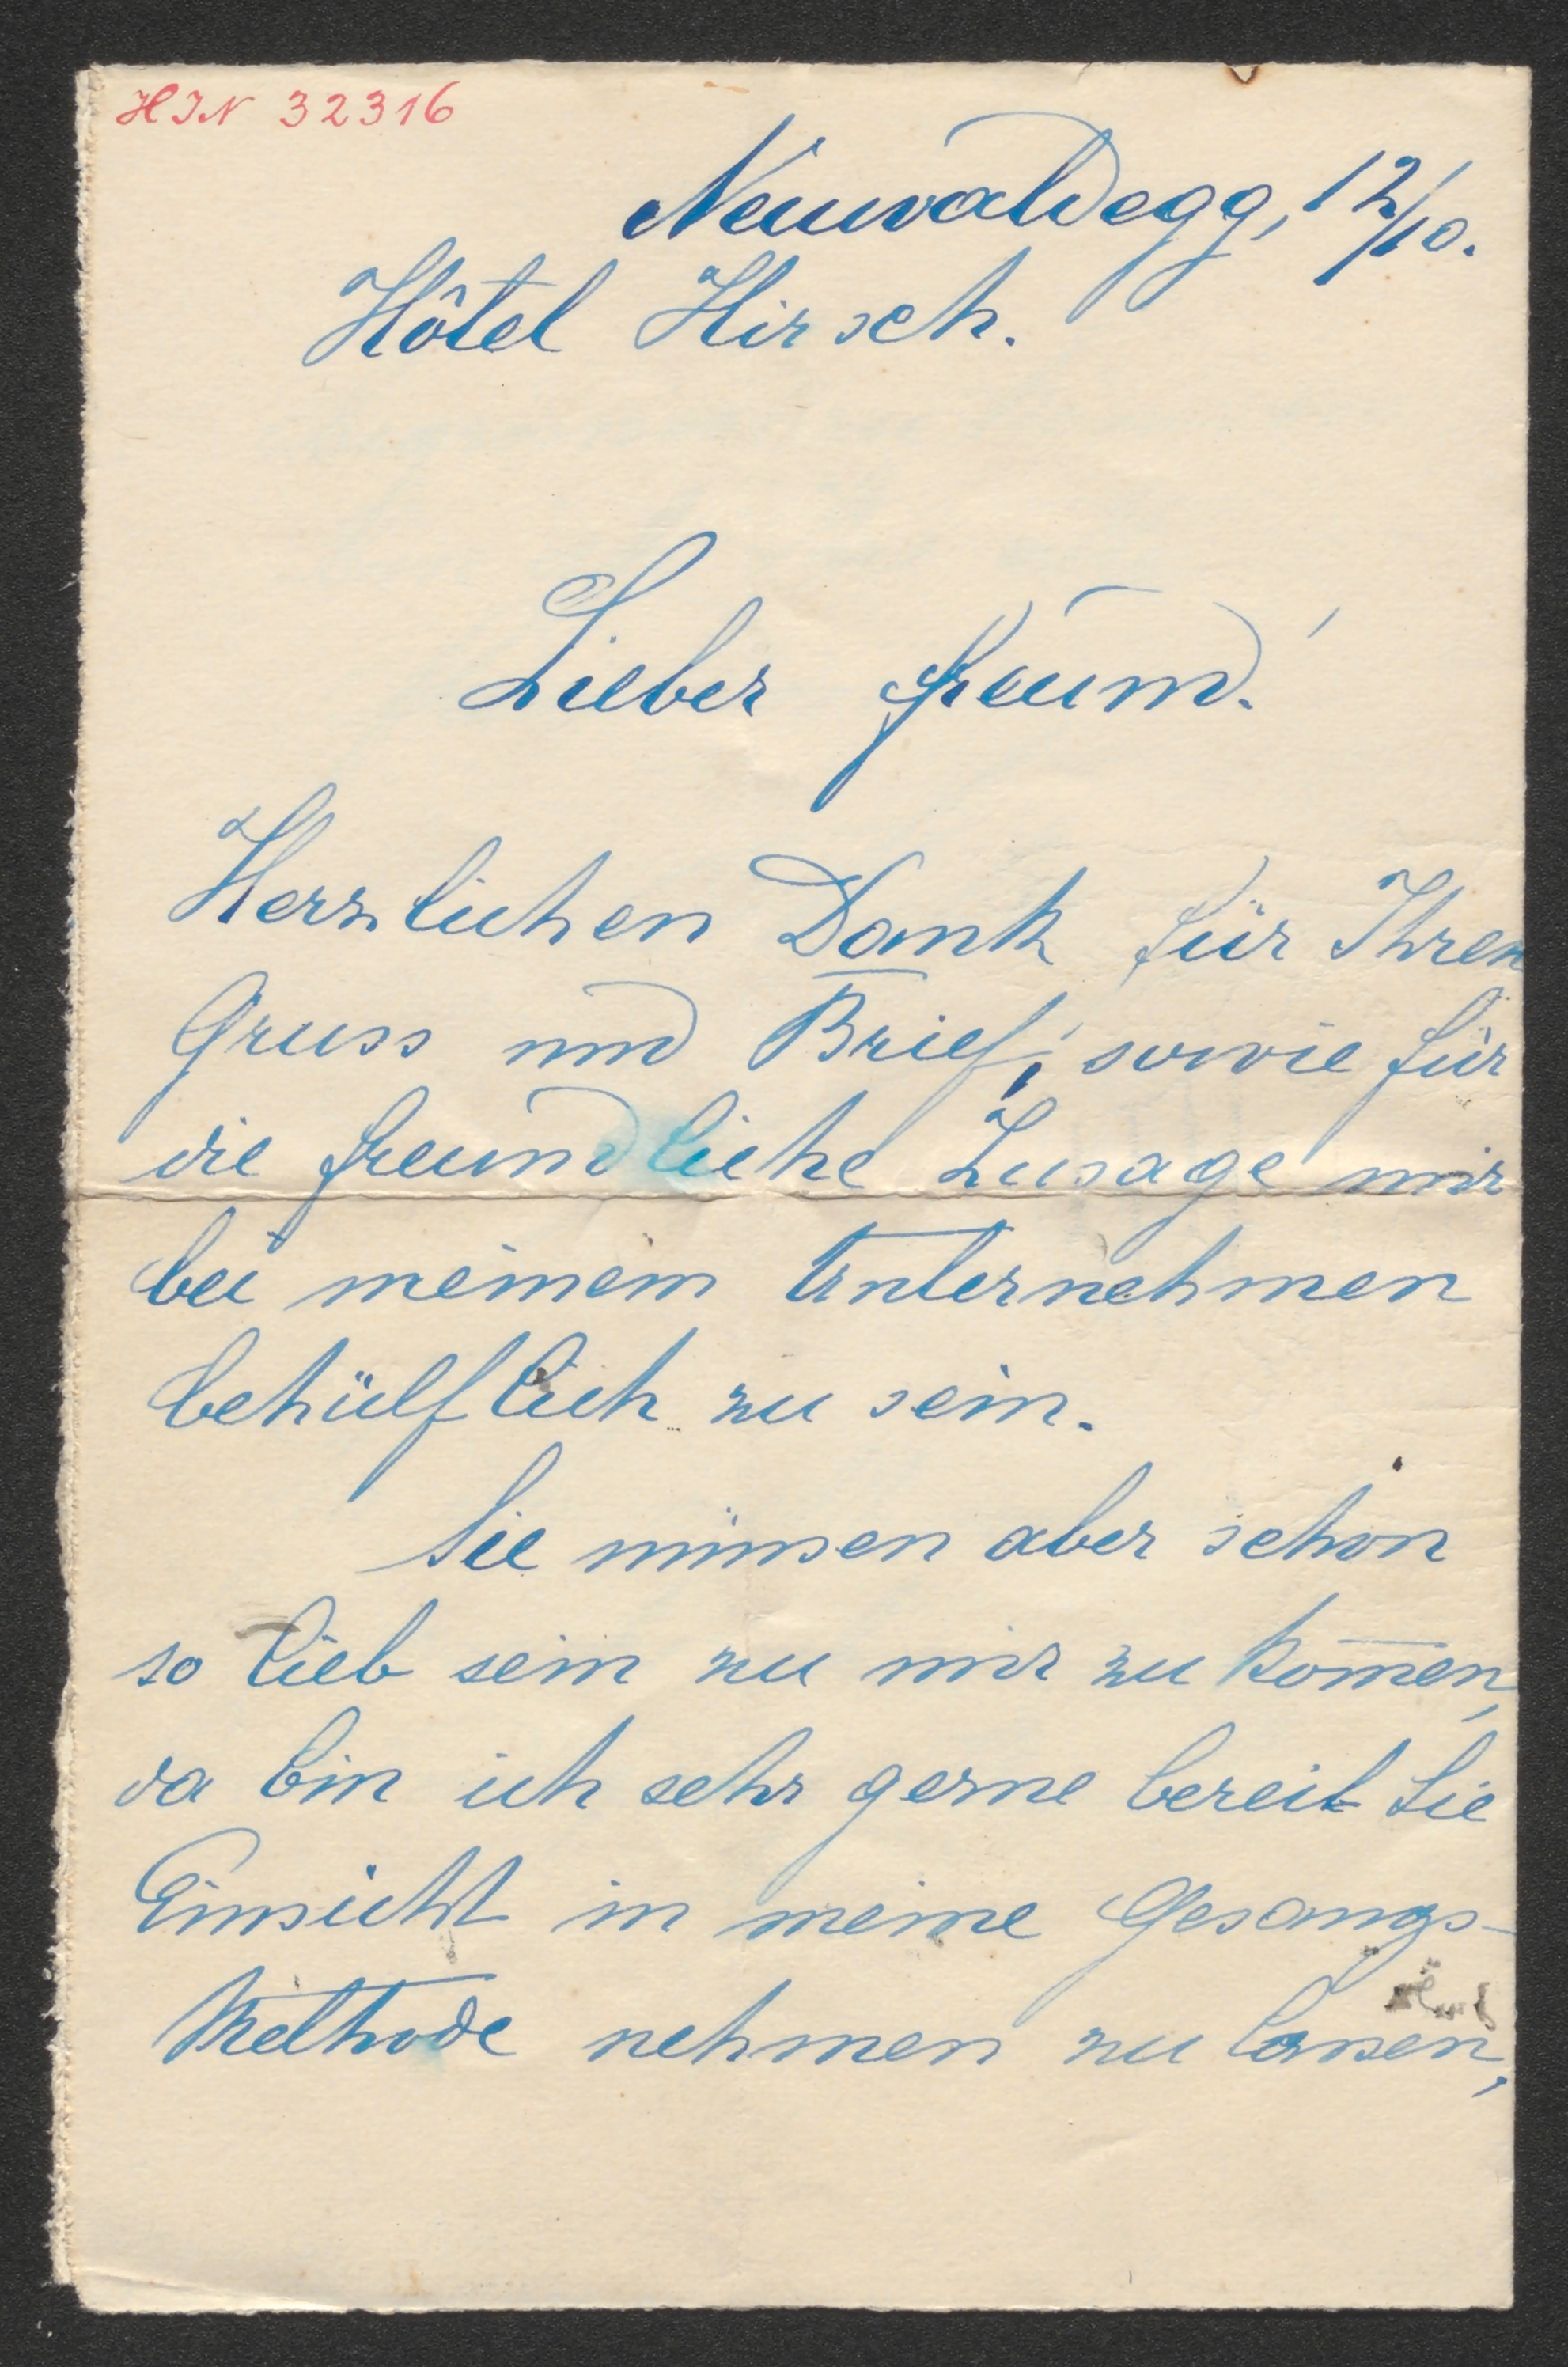 HIN 32316
Neuwaldegg, 12/10.
Hôtel Hirsch.
Lieber Freund!
Herzlichen Dank für Ihren
Gruss und Brief, sowie für
die freundliche Zusage mir
bei meinem Unternehmen
behülflich zu sein.
Sie müssen aber schon
so lieb sein zu mir zu kom̄en,
da bin ich sehr gerne bereit Sie
Einsicht in meine Gesangs-
Methode nehmen zu lassen,